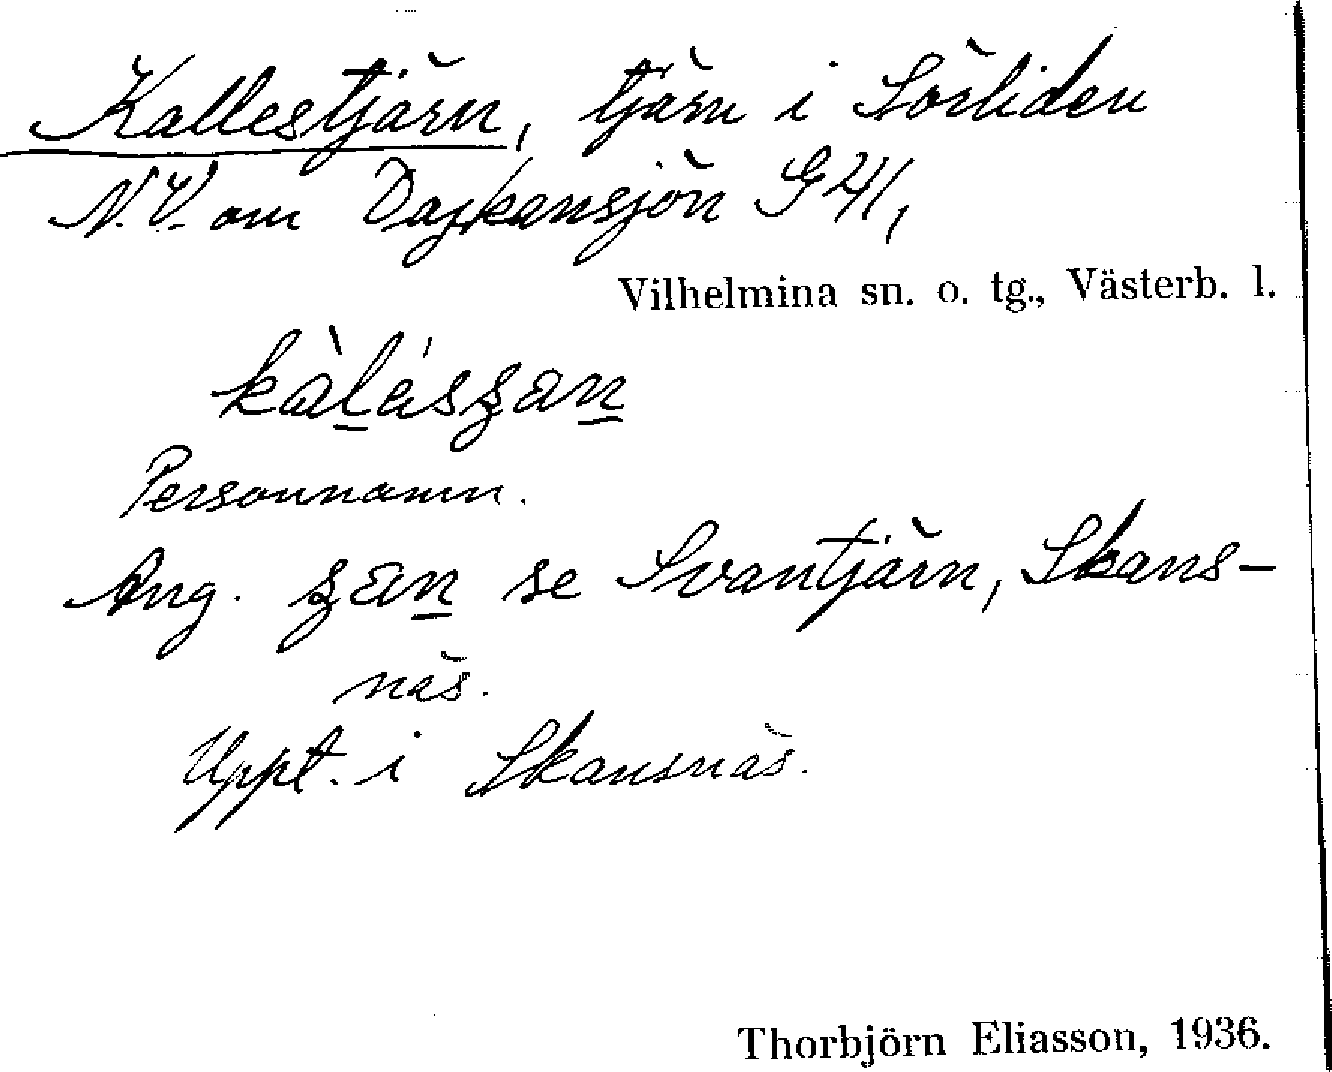 Kallestjärn, tjärn i Sörliden
N.V. om Dajkansjön G41,
Vilhelmina sn. o. tg., Västerb. l.
Personnamn.
Ang. se Svantjärn, Skans-
näs.
Uppt. i Skansnäs.
Thorbjörn Eliasson, 1936.